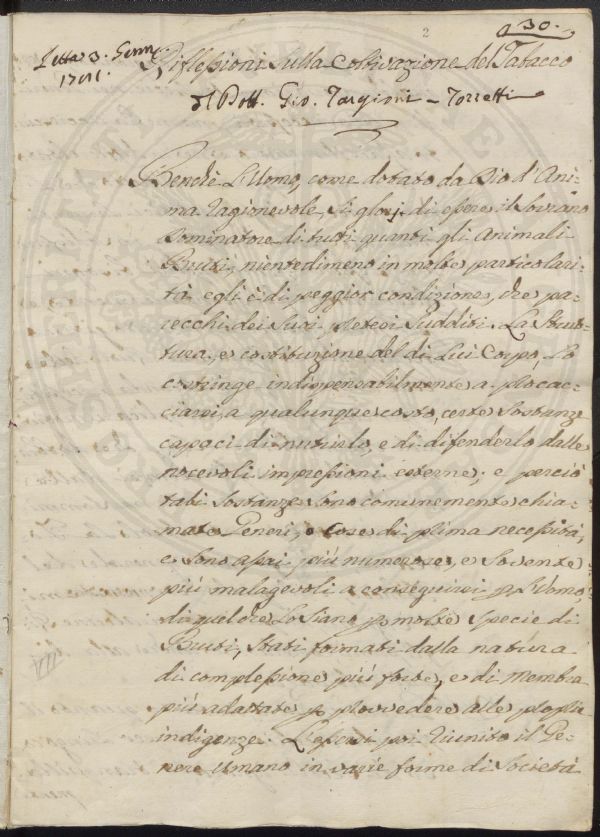 2
30.
Letta 3. Genn.
1781.
Riflessioni sulla Coltivazione del Tabacco
del Dott. Gio. Targioni-Tozzetti
Benchè L'Uomo, come dotato da Dio d'Ani-
ma ragionevole, si glorj di essere il Sovrano
Dominatore di tutti quanti gli Animali
Bruti, nientedimeno in molte particolari-
tà egli è di peggior condizione, che pa-
recchi dei suoi pretesi sudditi. La Strut-
tura, e costituzione del di Lui Corpo, Lo
costringe indispensabilmente a procac-
ciarsi, a qualunque costo, certe sostanze
capaci di nutrirlo, e di difenderlo dalle
nocevoli impressioni esterne; e perciò
tali sostanze sono comunemente chia-
mate Generi, o Cose di prima necessità,
e sono assai più numerose, e sovente
più malagevoli a conseguirsi p L'Uomo,
di quel che Lo siano p molte specie di
Bruti, stati formati dalla natura
di complessione più forte, e di membra
più adattate p provvedere alle proprie
indigenze. L'essersi poi riunito il Ge-
nere Umano in varie forme di Società